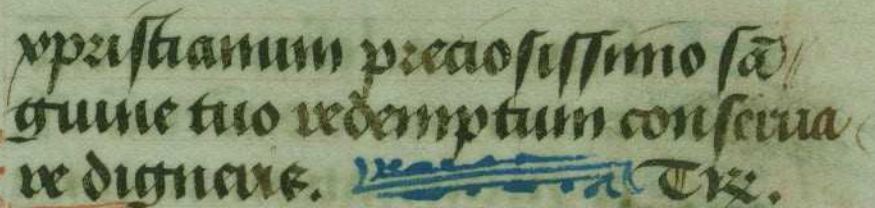 xpristianum preciosissimo sā//
guine tuo redemptum conserva
re digneris. Te rꝝ.